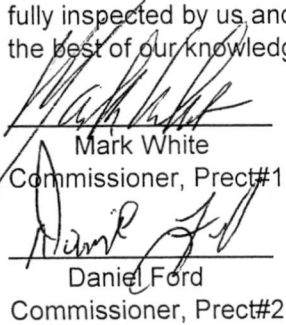 fully inspected by us and
the best of our knowledg
Mark White
Mark White
Commissioner, Prect#1
Daniel Ford
Daniel Ford
Commissioner, Prect#2